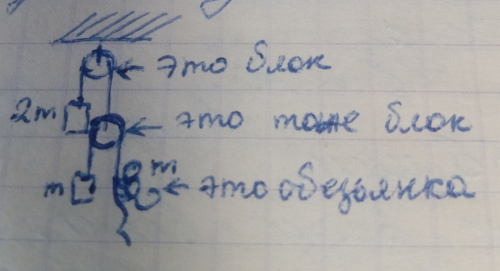 это блок
2m
это тоже блок
m
m
это обезьянка